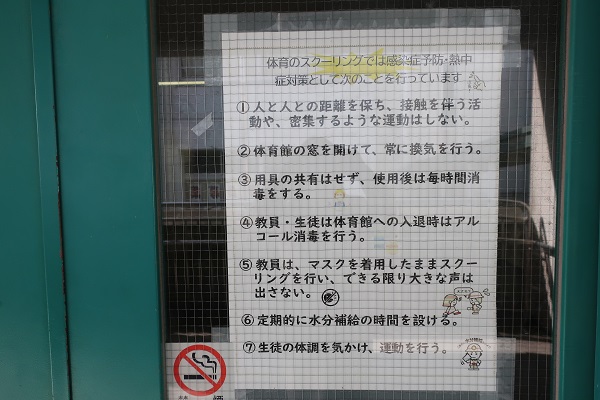 体育のスクーリングでは感染症予防・熱中
症対策として次のことを行っています
①人と人との距離を保ち、接触を伴う活
動や、密集するような運動はしない。
②体育館の窓を開けて、常に換気を行う。
③用具の共有はせず、使用後は毎時間消
毒をする。
④教員・生徒は体育館への入退時はアル
コール消毒を行う。
⑤教員は、マスクを着用したままスクー
リングを行い、できる限り大きな声は
出さない。
⑥定期的に水分補給の時間を設ける。
⑦生徒の体調を気かけ、運動を行う。